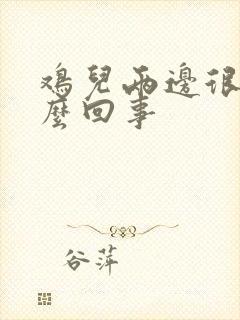 鴻兒兩邊很
麼回事
谷萍